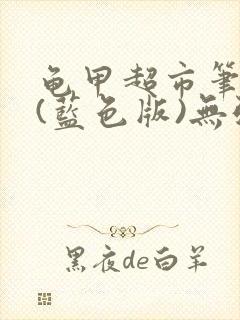 龟甲超市筆
(藍色版)無
黑夜de白羊